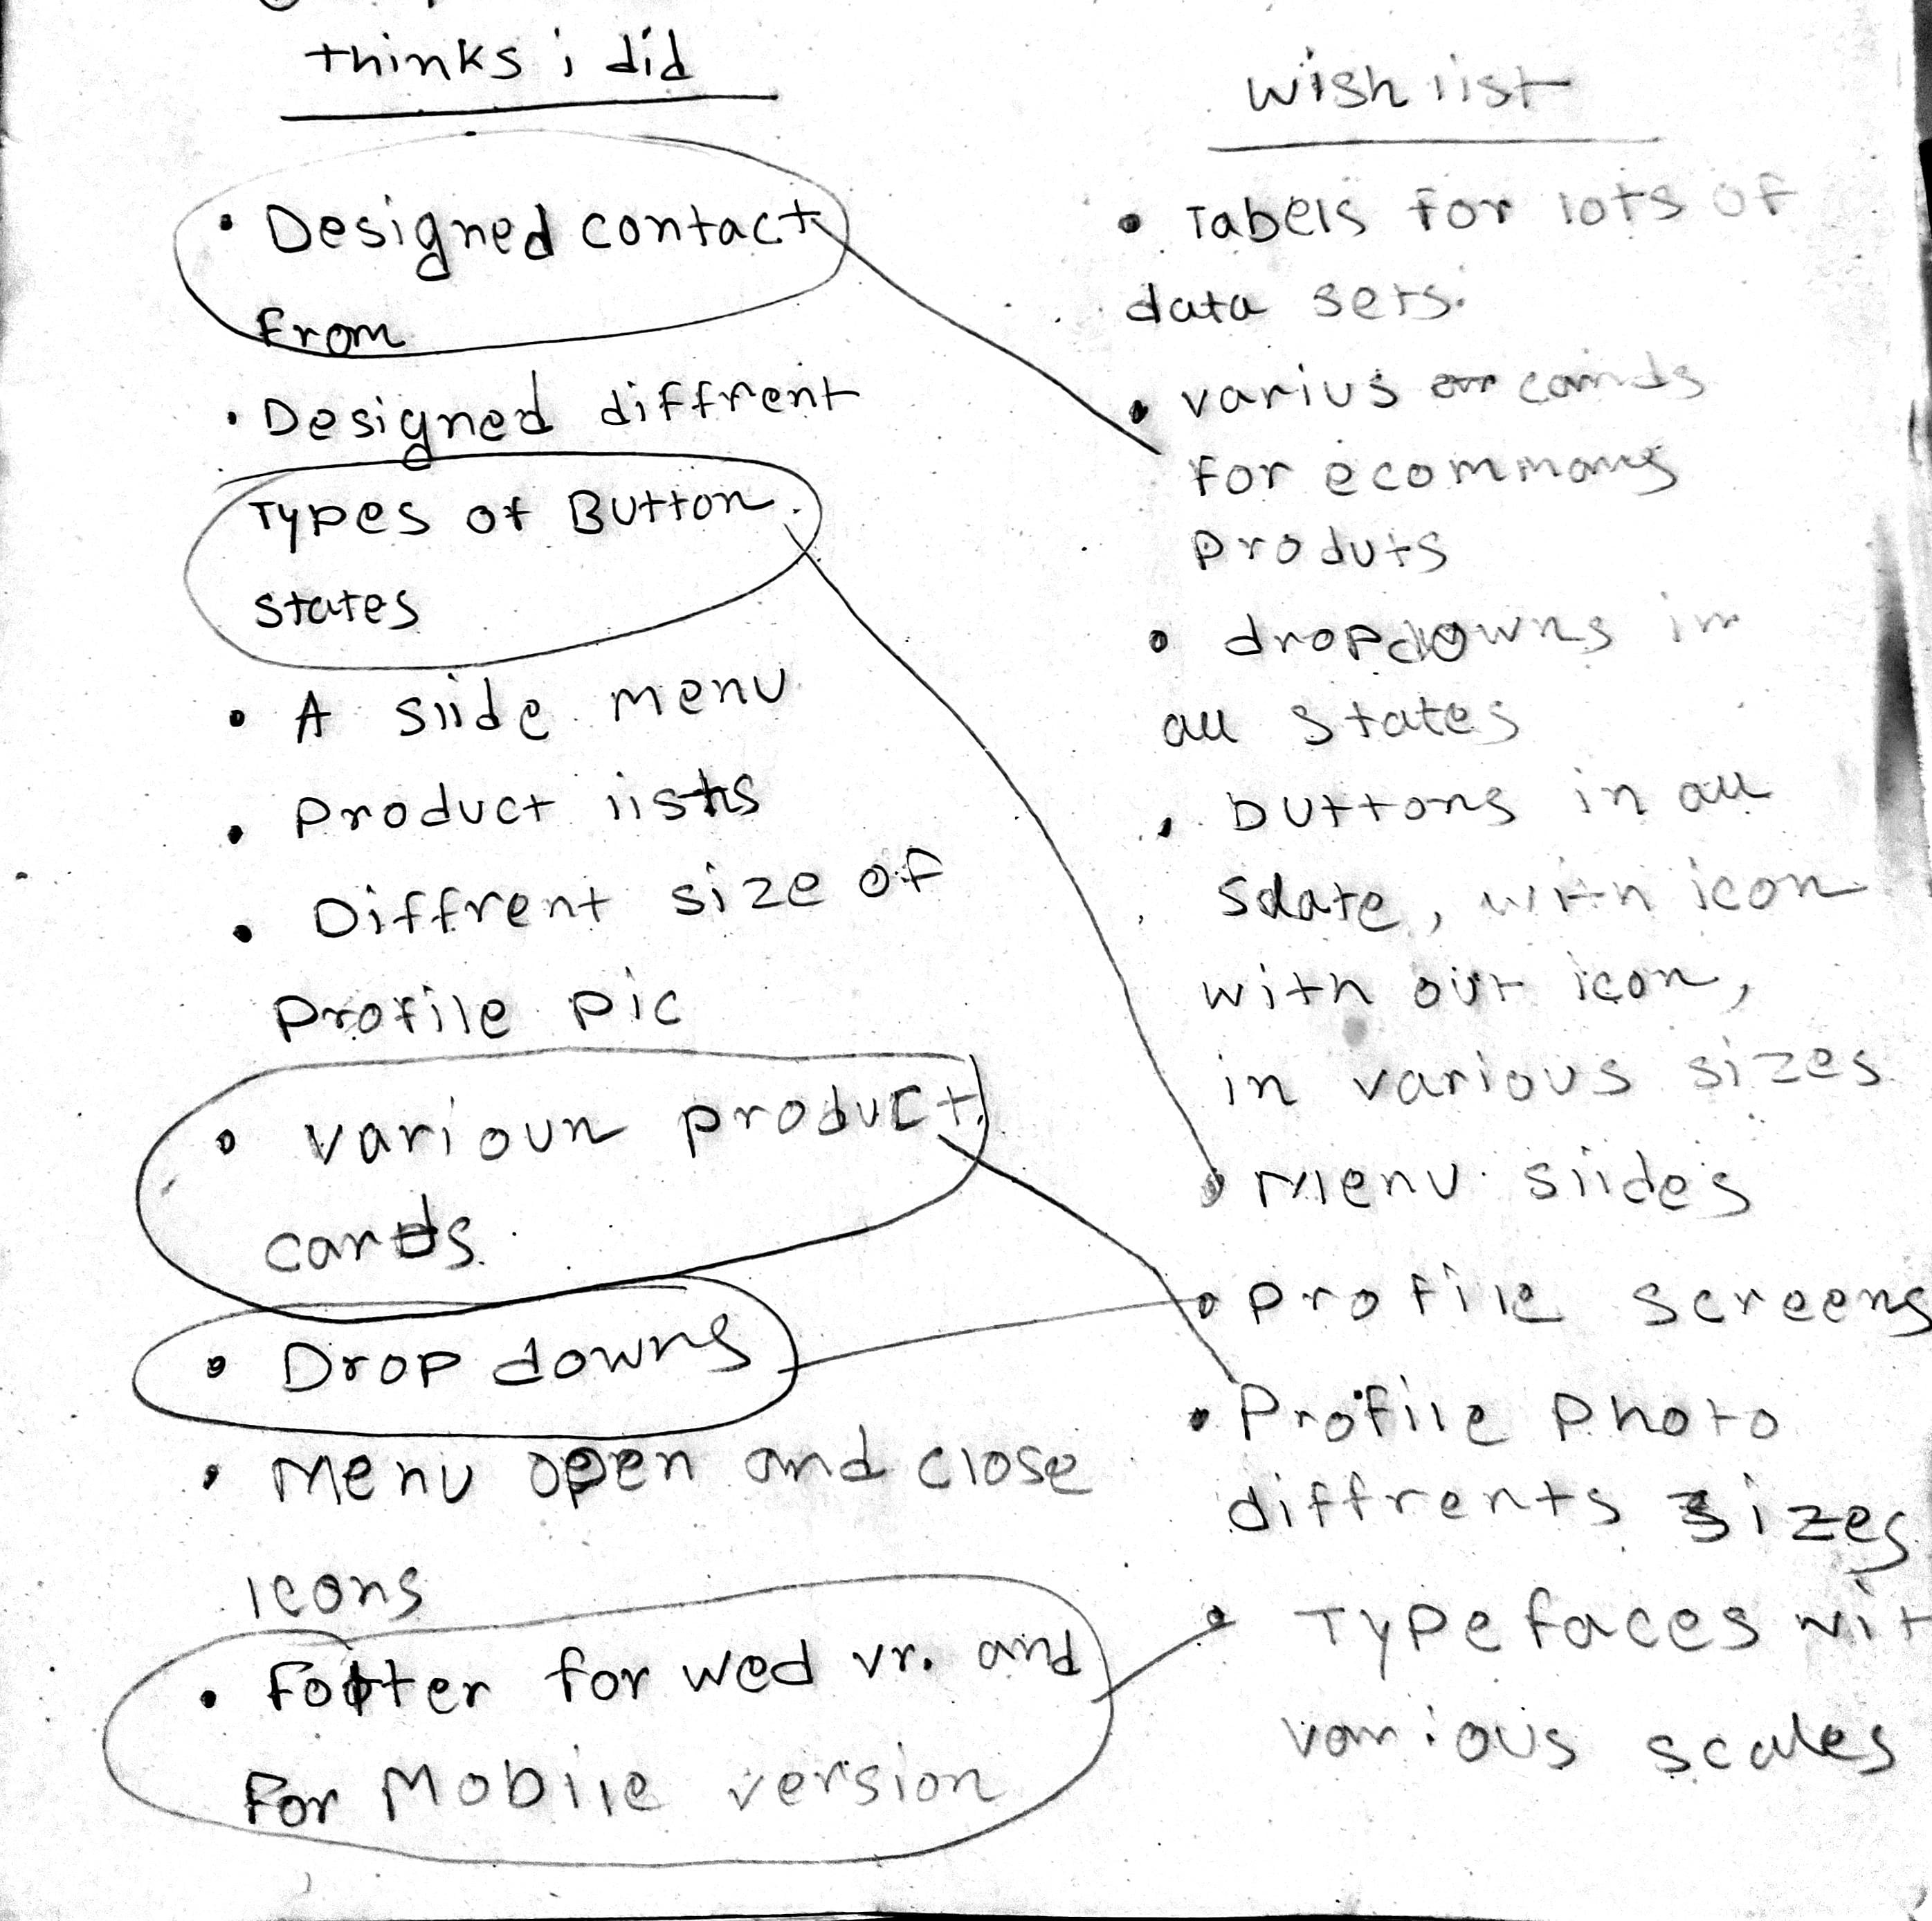 thinks i did
Designed contact
from
Designed diffrent
Types of Button
states
A slide menu
Product lists
Diffrent size of
Profile pic
varioun product
cards
Drop downs
Menu open and close
icons
footer for wed vr. and
for Mobile version
wish list
Tabels for lots of
data sets.
varius cards
for ecommang
produts
dropdowns in
all states
buttons in all
sdate, with icon
with out icon,
in various sizes
Menu slides
profile screens
Profile photo
diffrents sizes
Type faces wit
various scales